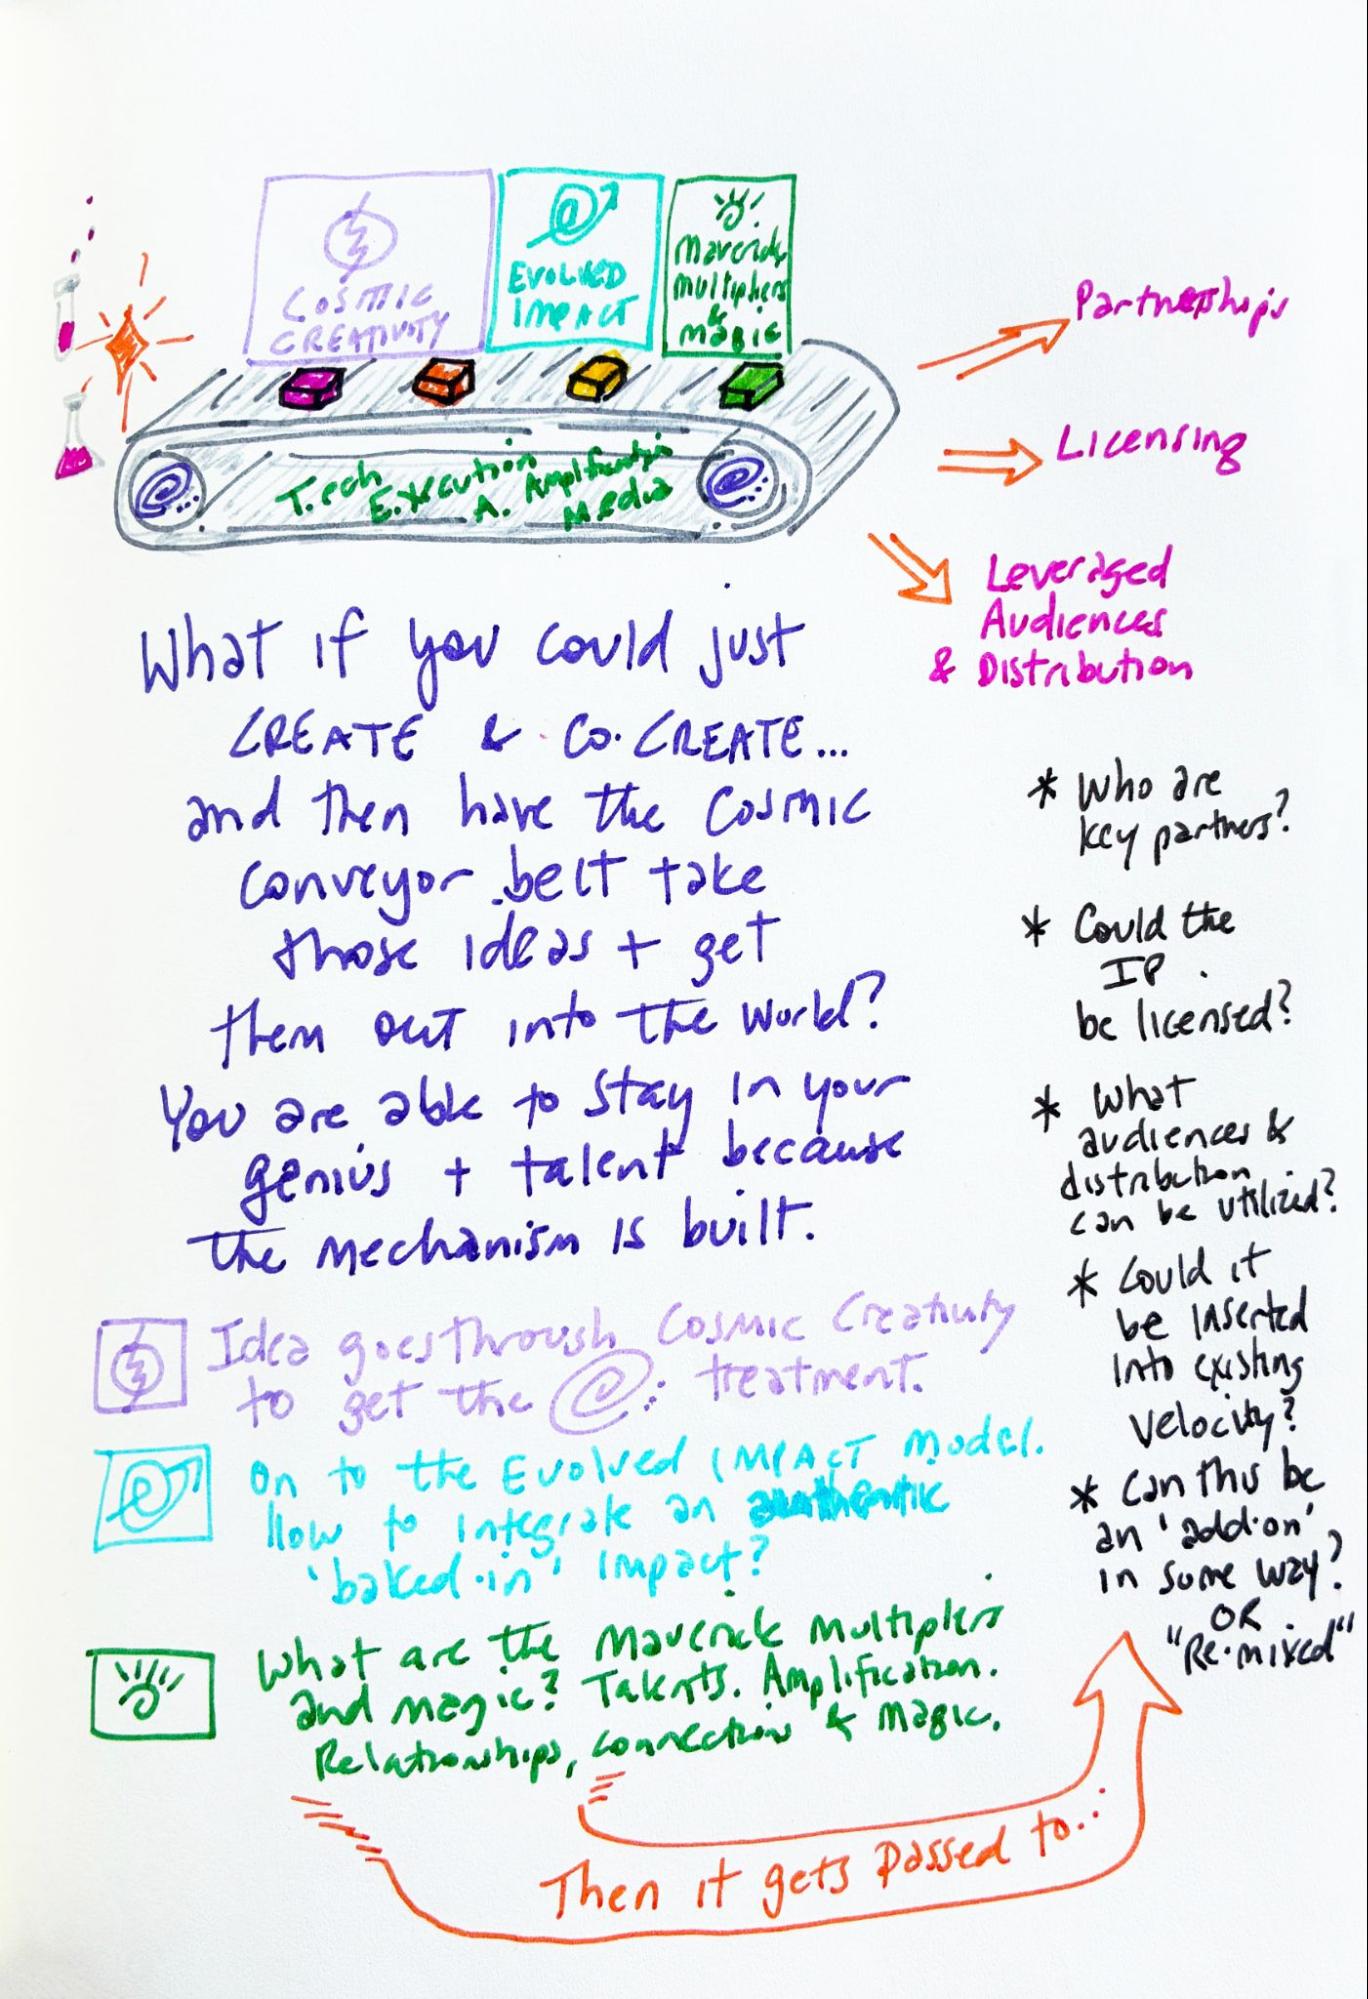 COSMIC
CREATIVITY
@
EVOLVED
IMPACT
Maverick
Multipliers
&
Magic
Partnerships
Licensing
Leveraged
Audiences
& Distribution
T.ech
E.xecution
A. Amplification
Media
What if you could just
CREATE & CO.CREATE...
and then have the COSMIC
conveyor belt take
those ideas + get
them out into the world?
You are able to stay in your
genius + talent because
the mechanism is built.
Idea goes through Cosmic Creativity
to get the @: treatment.
On to the Evolved IMPACT Model.
How to integrate an authentic
'baked.in' impact?
What are the Maverick Multipliers
and magic? Talents. Amplification.
Relationships, connection & Magic.
Then it gets passed to...
* Who are
key partners?
* Could the
IP
be licensed?
* What
audiences &
distribution
can be utilized?
* Could it
be inserted
into existing
velocity?
* Can this be
an 'add.on'
in some way?
OR
"Re.mixed"